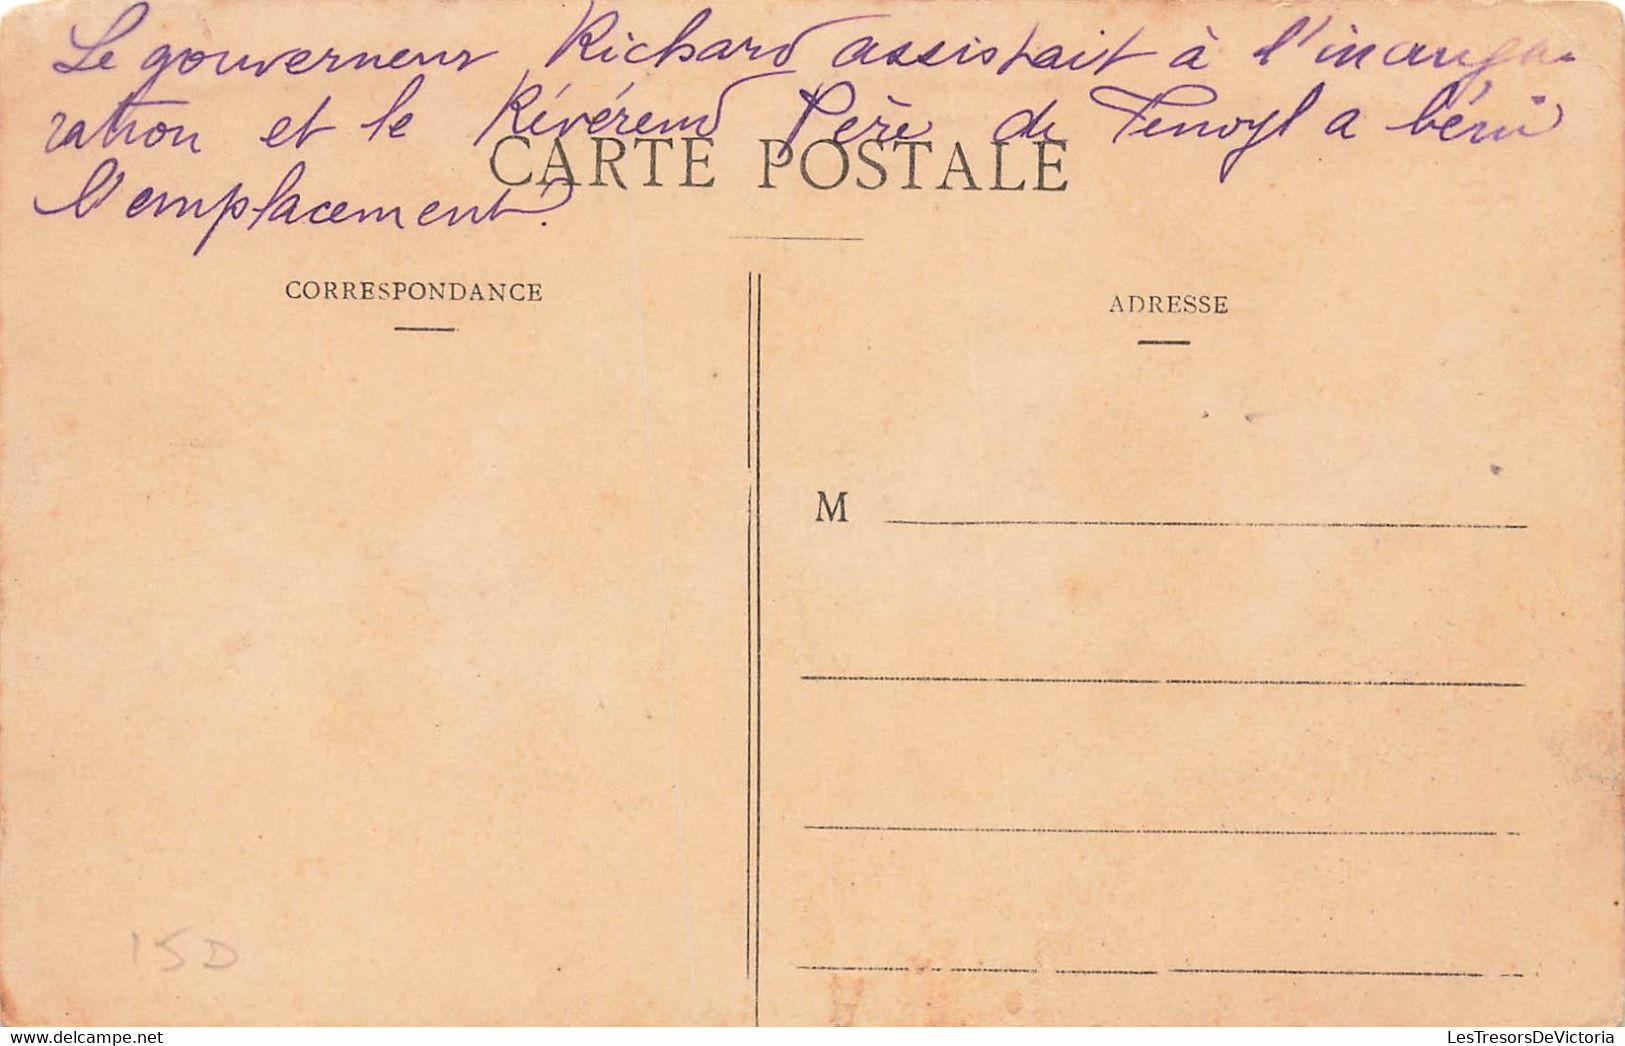 Le gouverneur Richard assistait à l'inaugu-
ration et le Révérend Père de Fenoyl a béni
l'emplacement.
CARTE POSTALE
CORRESPONDANCE
ADRESSE
M
15D
LesTresorsDeVictoria